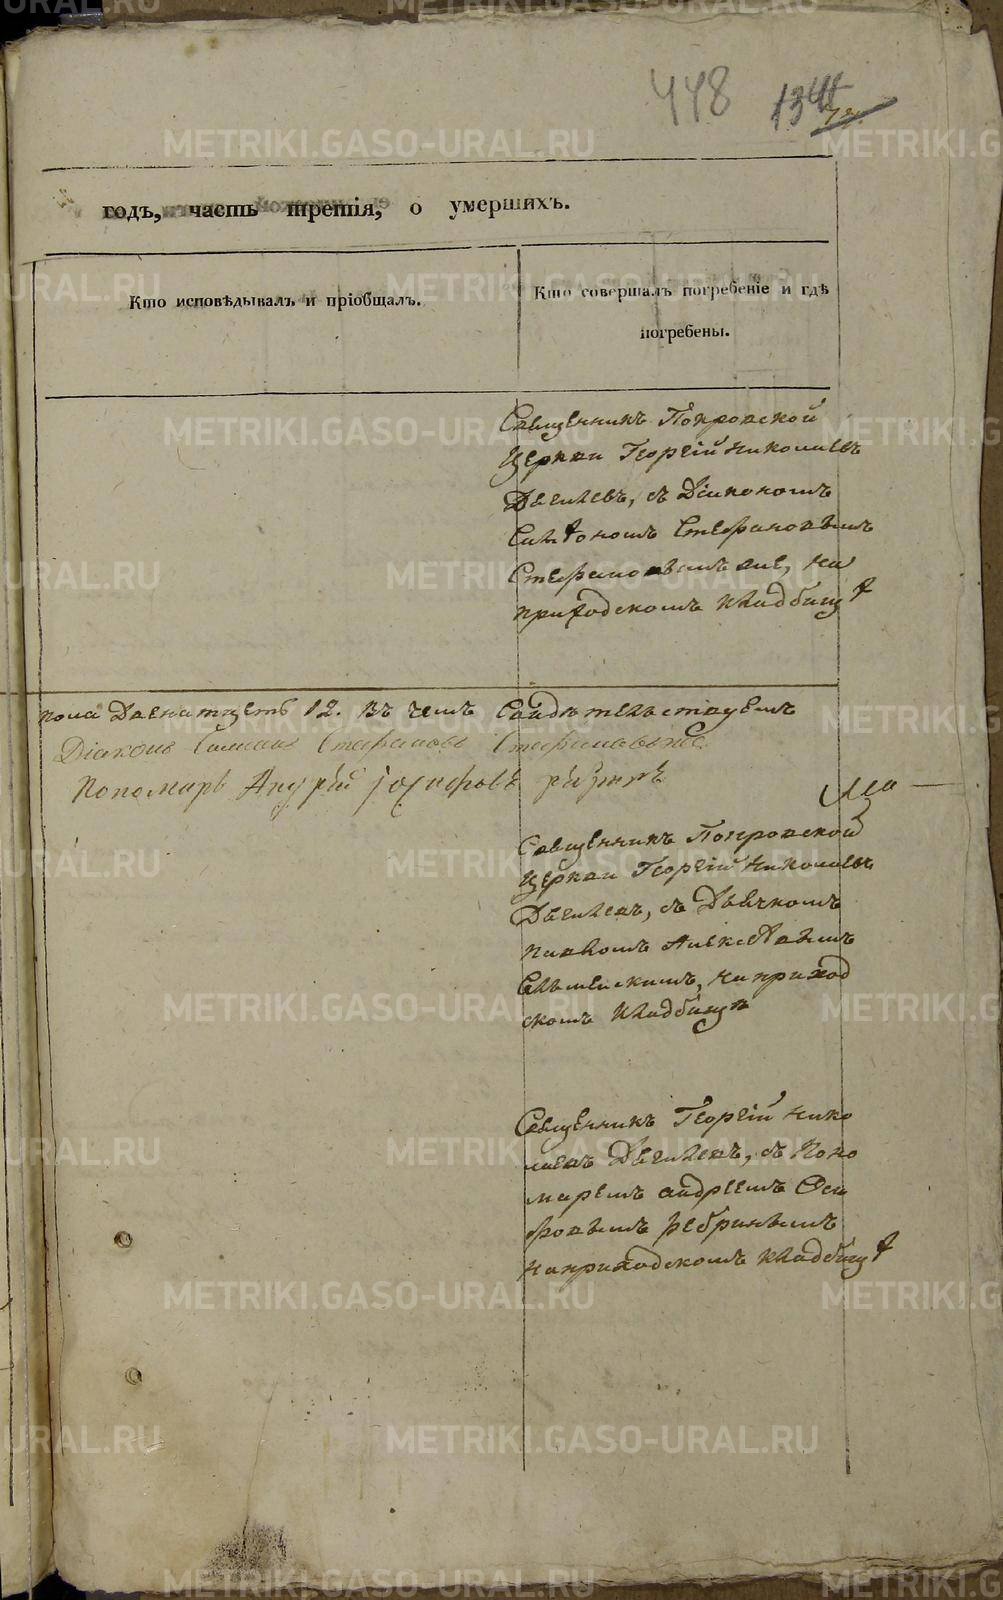 448 134
годъ, часть третія, о умершихъ.
Кто исповѣдывалъ и пріобщалъ.
Кто совершалъ погребеніе и гдѣ
погребены.
Священникъ Покровской
Церкви Георгій Николаевъ
Дягилевъ, съ Діакономъ
Симѣономъ Стефановымъ
Стефановымъ же, на
приходскомъ кладбищѣ
пола Двенатцеть 12. Въ чемъ Свидѣтельствуемъ
Діаконъ Симеонъ Стефановъ
Пономарь Андрій Іосифовъ
Священникъ Покровской
Церкви Георгій Николаевъ
Дягилевъ, съ Дьячкомъ
Павломъ Алексѣвымъ
на приход
скомъ кладбищѣ
Священникъ Георгій Нико
лаевъ Дягилевъ, съ Поно
маремъ андреемъ Оси
фовымъ
на приходскомъ кладбищѣ
METRIKI.GASO-URAL.RU